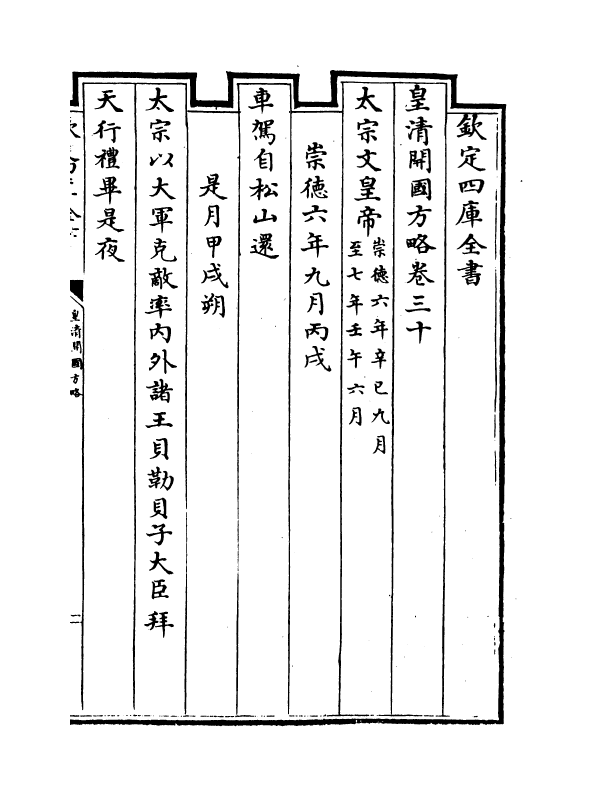 欽定四庫全書
皇清開國方略卷三十
太宗文皇帝崇德六年辛巳九月
至七年壬午六月
崇德六年九月丙戌
車駕自松山還
是月甲戌朔
太宗以大軍克敵率內外諸王貝勒貝子大臣拜
天行禮畢是夜
皇清開國方略